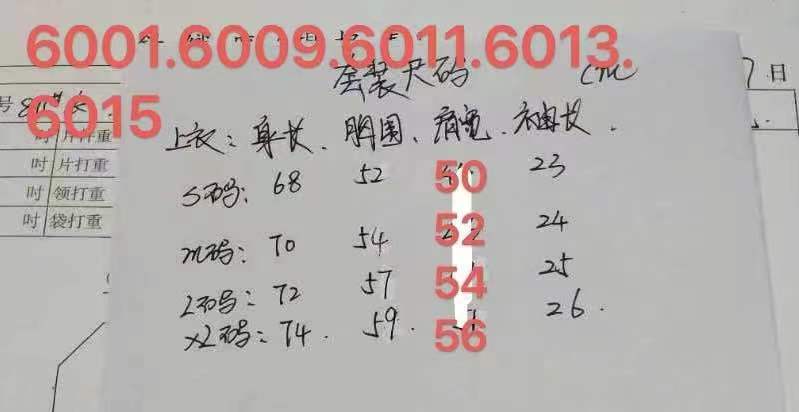 6001.6009.6011.6013.
6015
套装尺码 cm
日
号
上衣：身长、胸围、肩宽、袖长.
S码：68 52 50 23
M码：70 54 52 24
L码：72 57 54 25
XL码：74. 59. 56 26.
时 片打重
时 领打重
时 袋打重